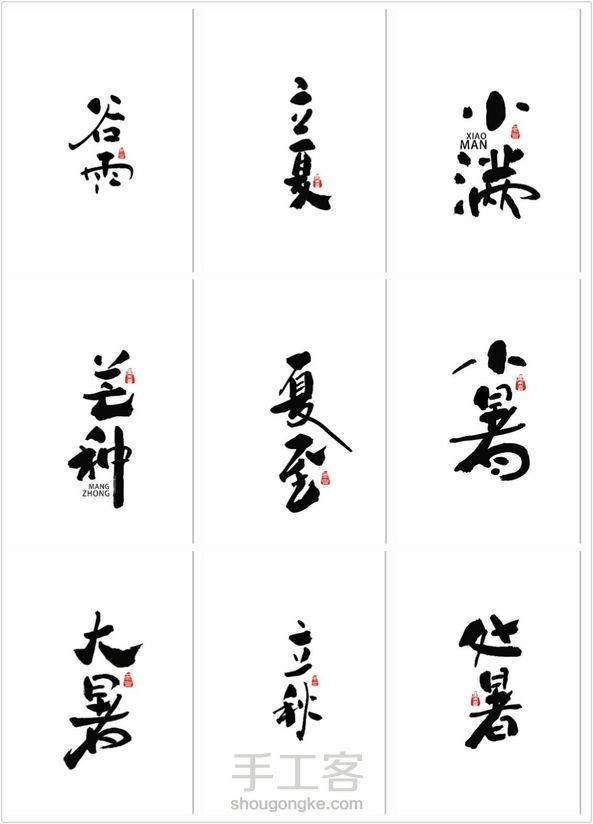 谷雨
立夏
小满
XIAO
MAN
芒种
MANG
ZHONG
夏至
小暑
大暑
立秋
处暑
手工客
shougongke.com